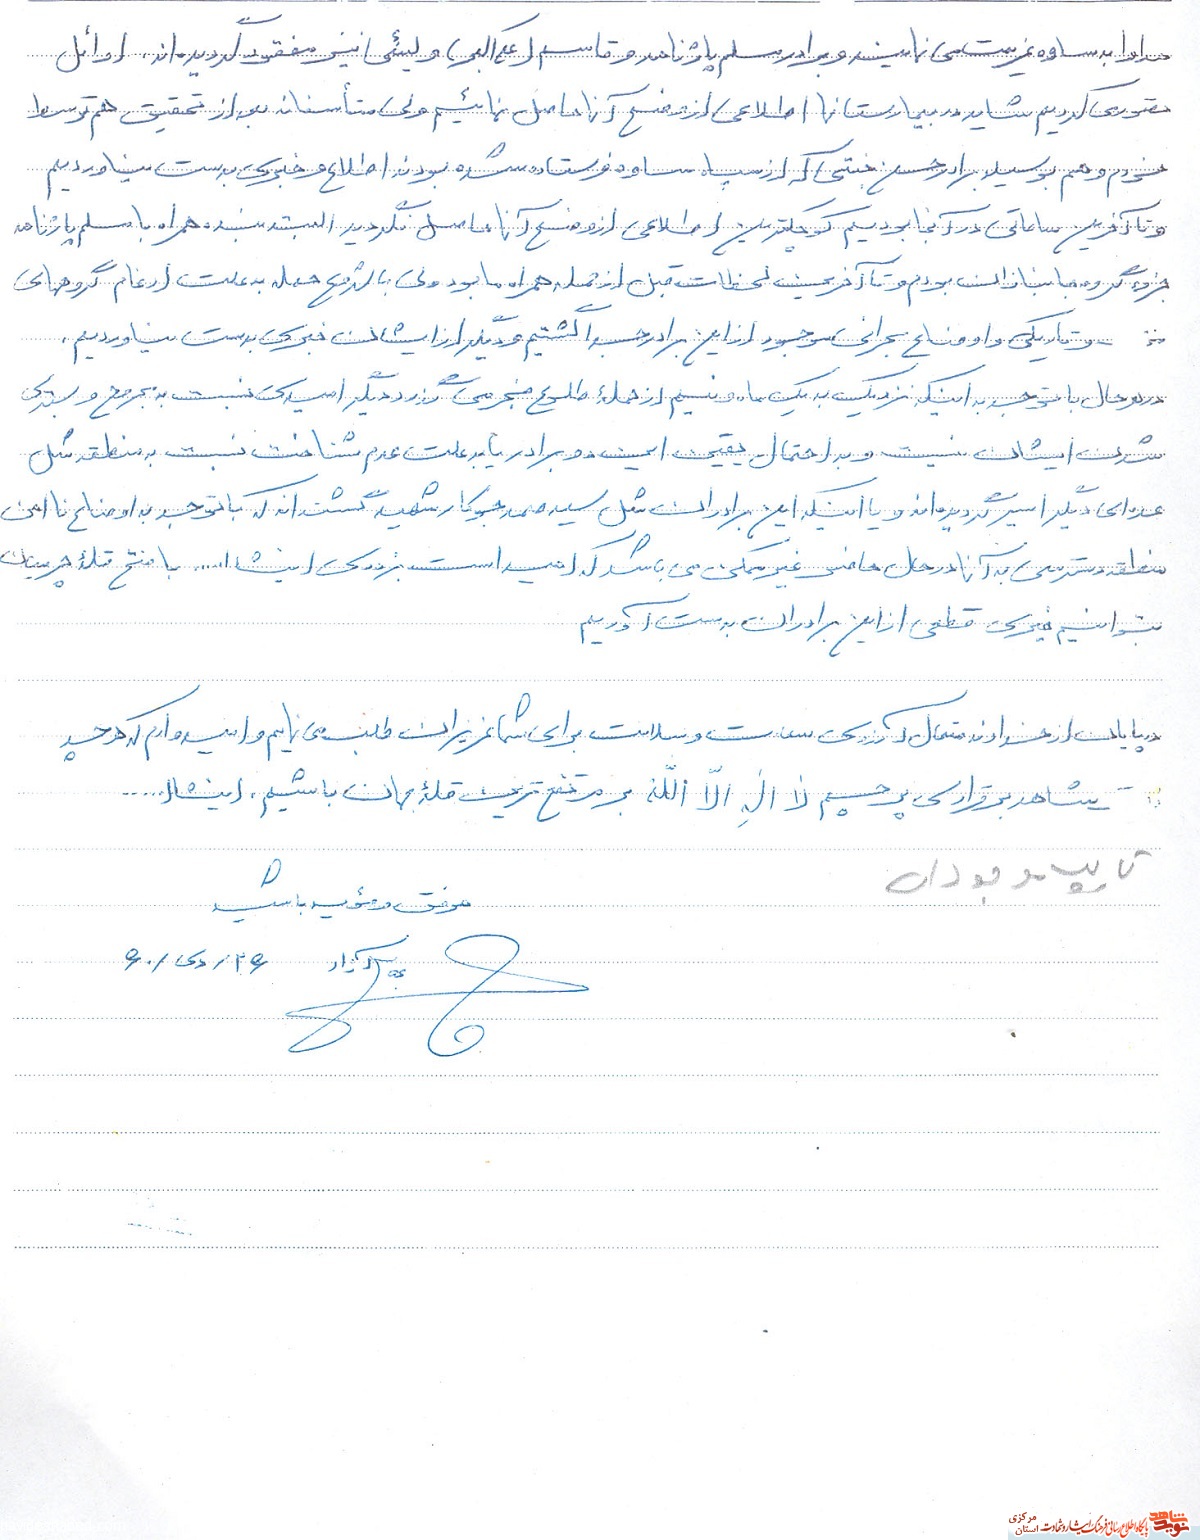 مداوا به ساوه عزیمت می نمایند و برادر مسلم پاژنامه و قاسم علی اکبری ولیئی نیز مفقود گردیده‌اند. اوائل
تصور می کردیم شاید در بیمارستانها اطلاعی از وضع آنها حاصل نمائیم ولی متأسفانه بعد از تحقیق هم توسط
خودم و هم بوسیله برادر حسین که از سپاه ساوه فرستاده شده بودند اطلاع و خبری بدست نیاوردیم
و تا آخرین ساعاتی در آنجا بودیم کوچکترین اطلاعی از وضع آنها حاصل نگردید البته بنده همراه با مسلم پاژنامه
جزء گروه جانبازان بودم و تا آخرین لحظات قبل از حمله همراه ما بود ولی با شروع حمله به علت ادغام گروههای
و تاریکی و اوضاع بحرانی موجود از این برادر جدا گشتیم و دیگر از ایشان خبری بدست نیاوردیم.
در هر حال با توجه به اینکه نزدیک به یک ماه و نیم از حمله طلوع فجر می گذرد دیگر امیدی نسبت به مجروح و بستری
شدن ایشان نیست و به احتمال یقین این دو برادر یا به علت عدم شناخت نسبت به منطقه مثل
عده‌ای دیگر اسیر گردیده‌اند و یا اینکه این برادران مثل سید صمد جوکار شهید گشته‌اند که با توجه به اوضاع ناامن
منطقه دسترسی به آنها در حال حاضر غیر ممکن می باشد که امید است بزودی انشاا... با فتح قله چرمیان
بتوانیم خبری قطعی از این برادران بدست آوریم
در پایان از خداوند متعال آرزوی سعادت و سلامت برای شما عزیزان طلب می نمایم و امیدوارم که هر چه
شاهد برقراری پرچم لا اله الّا اللّه بر مرتفع ترین قلهٔ جهان باشیم. انشاا.....
تایپ موجود است
موفق و مؤید باشید
۲۶/دی/۶۰
نوید شاهد
پایگاه اطلاع رسانی فرهنگ ایثار و شهادت استان مرکزی